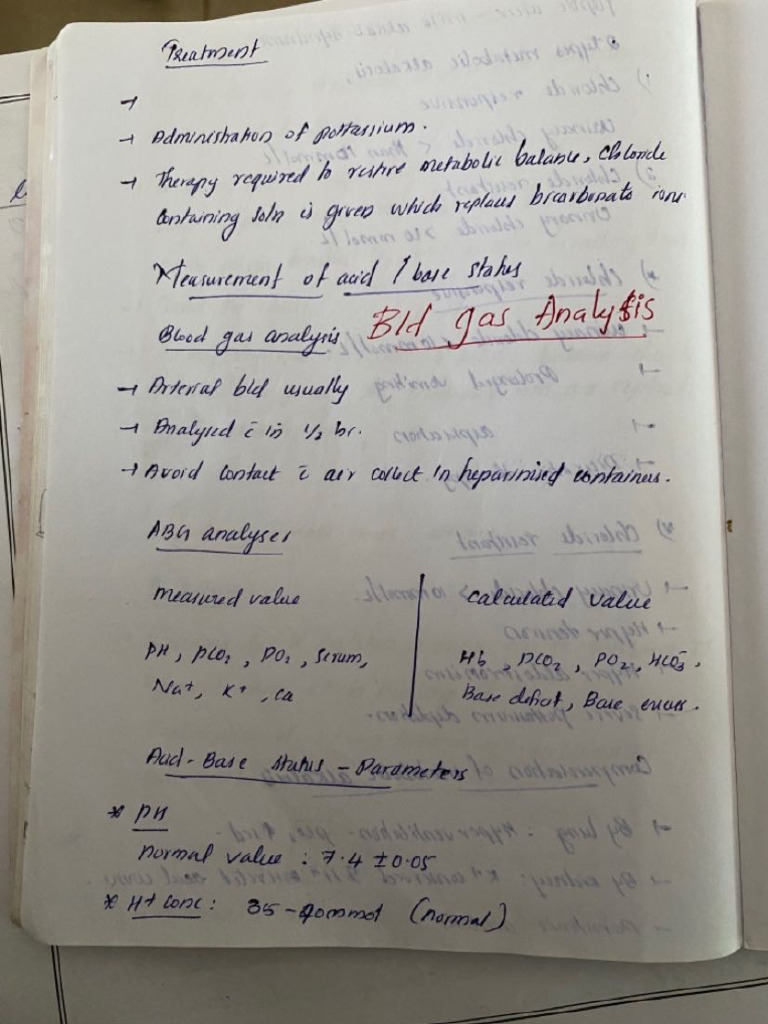 Treatment
→
→ Administration of pottassium.
→ Therapy required to restore metabolic balance, chloride
containing soln is given which replaces bicarbonate ions
Measurement of acid / base status
Blood gas analysis Bld gas Analysis
→ Arterial bld usually
→ Analysed c̄ in 1/2 hr.
→ Avoid contact c̄ air collect in heparinised containers.
ABG analyses
measured value calculated value
PH, pCO₂, PO₂, serum, Hb, PCO₂, PO₂, HCO₃⁻,
Na⁺, K⁺, ca Base deficit, Base excess.
Acid-Base status - Parameters
* PH
normal value : 7.4 ±0.05
* H+ conc : 35-40mmol (normal)